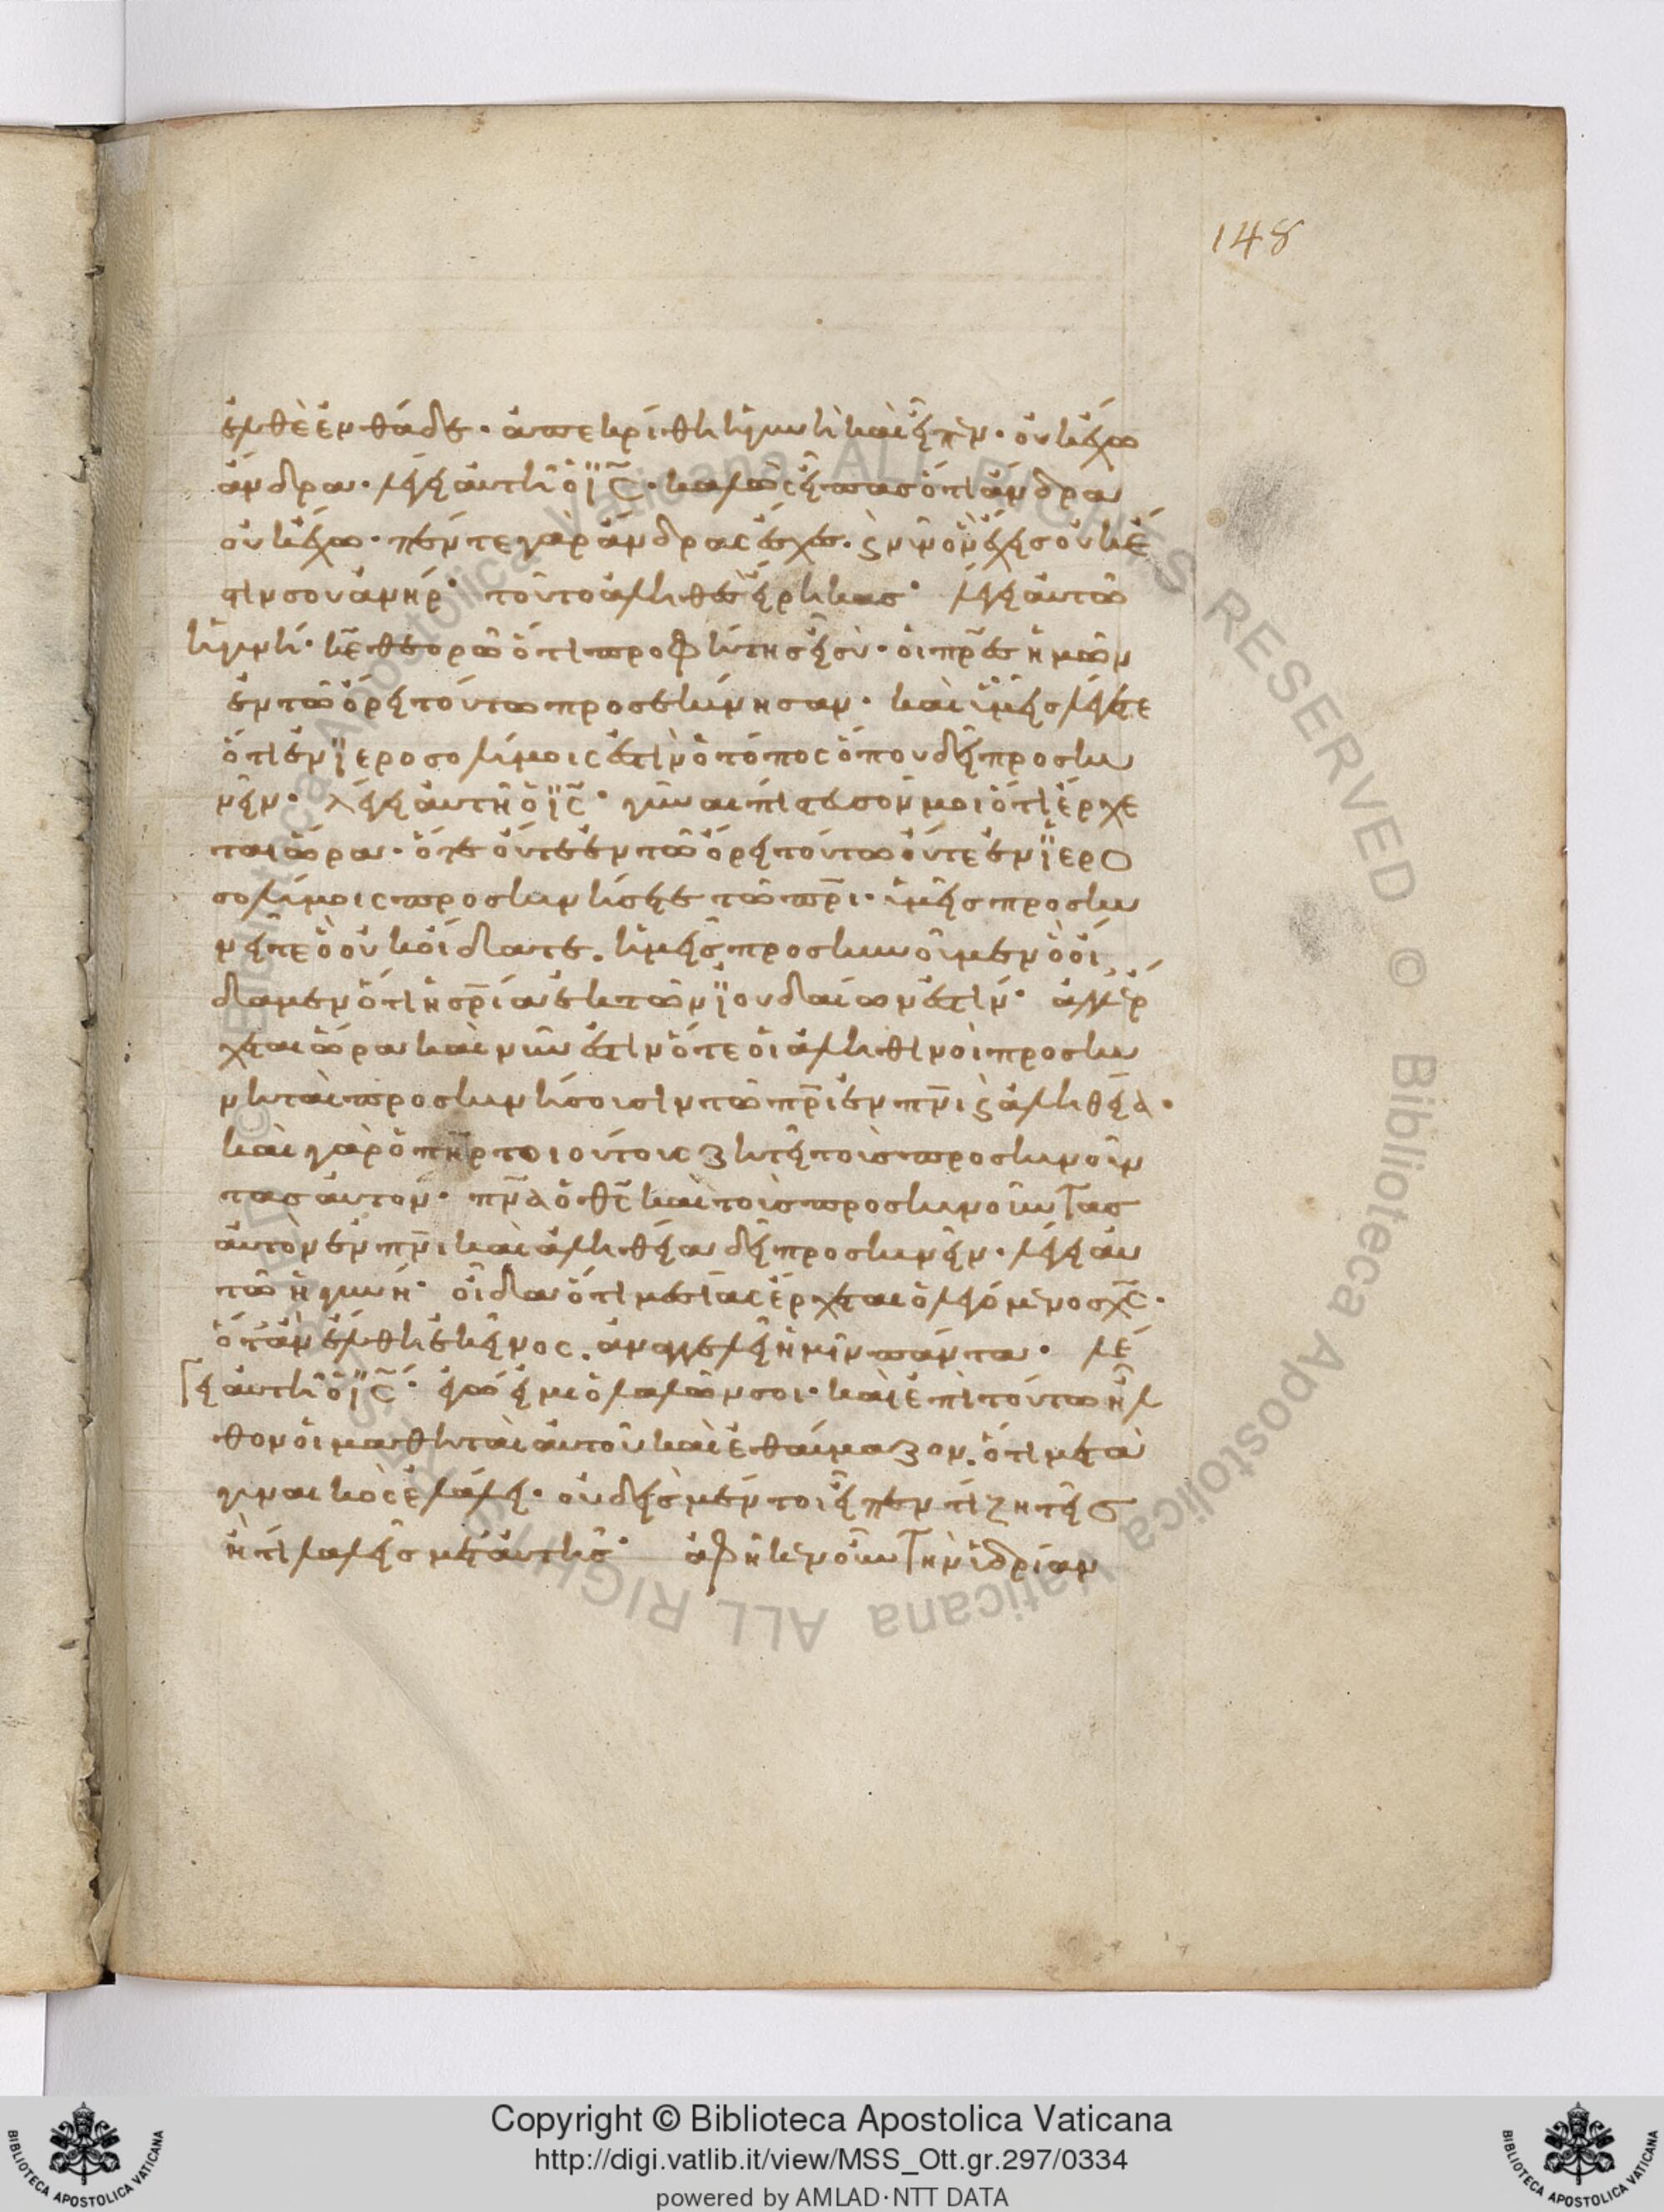 148
ἐλθὲ ἐνθάδε· ἀπεκρίθη ἡ γυνὴ καὶ εἶπεν· οὐκ ἔχω
ἄνδρα· λέγει αὐτῇ ὁ ϊς̅· καλῶς εἶπας ὅτι ἄνδρα
οὐκ ἔχω· πέντε γὰρ ἄνδρας ἔσχες· ϛ νῦν ὃν ἔχεις οὐκ ἔ
στιν σου ἀνήρ· τοῦτο ἀληθὲς εἴρηκας· λέγει αὐτῶ
ἡ γυνή· κε̅ θεορῶ ὅτι προφήτης εἶ σύ· οἱ πρ̅ες ἡμῶν
ἐν τῶ ὄρει τούτω προσεκύνησαν· καὶ ὑμεῖς λέγετε
ὅτι ἐν ϊεροσολύμοις ἐστὶν ὁ τόπος ὅπου δεῖ προσκυ
νεῖν· λέγει αὐτῆ ὁ ϊς̅· γύναι πίστευσόν μοι ὅτι ἔρχε
ται ὥρα· ὅτε οὔτε ἐν τῶ ὄρει τούτω οὔτε ἐν ϊερο
σολύμοις προσκυνήσετε τῶ πρ̅ι· ὑμεῖς προσκυ
νεῖτε ὃ οὐκ οἴδατε· ἡμεῖς προσκυνοῦμεν ὃ οἴ
δαμεν ὅτι ἡ σρ̅ία ἐκ τῶν ϊουδαίων ἐστίν· ἀλλ' ἔρ
χεται ὥρα καὶ νῦν ἐστιν ὅτε οἱ ἀληθινοὶ προσκυ
νηταὶ προσκυνήσουσιν τῶ πρ̅ι ἐν πν̅ι ϛ ἀληθεία·
καὶ γὰρ ὁ πη̅ρ τοιούτους ζητεῖ τοὺς προσκυνοῦν
τας αὐτόν· πν̅α ὁ θς̅ καὶ τοὺς προσκυνοῦντας
αὐτὸν ἐν πν̅ι καὶ ἀληθεία δεῖ προσκυνεῖν· λέγει αὐ
τῶ ἡ γυνή· οἶδα ὅτι μεσίας ἔρχεται ὁ λεγόμενος χς̅·
ὅταν ἔλθη ἐκεῖνος· ἀναγγελεῖ ἡμῖν πάντα· λέ
γει αὐτῆ ὁ ϊς̅· ἐγώ εἰμι ὁ λαλῶν σοι· καὶ ἐπὶ τούτω ἦλ
θον οἱ μαθηταὶ αὐτοῦ καὶ ἐθαύμαζον· ὅτι μετὰ
γυναικὸς ἐλάλει· οὐδεὶς μέντοι εἶπεν τί ζητεῖς
ἢ τί λαλεῖς μετ' αὐτῆς· ἀφῆκεν οὖν τὴν ὑδρίαν
Copyright © Biblioteca Apostolica Vaticana
http://digi.vatlib.it/view/MSS_Ott.gr.297/0334
powered by AMLAD·NTT DATA
BIBLIOTECA APOSTOLICA VATICANA
BIBLIOTECA APOSTOLICA VATICANA
© Biblioteca Apostolica Vaticana ALL RIGHTS RESERVED © Biblioteca Apostolica Vaticana ALL RIGHTS RESERVED